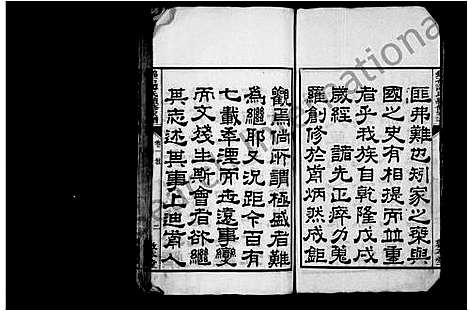 匪弗難也矧家之乘與
國之史有相提而並重
者乎我族自乾隆戊戌
歲經 諸先正瘁力蒐
羅創修於前炳然成鉅
觀焉尚所謂極盛者難
為繼耶又況距今百有
七載年湮而世遠事變
而文殘生斯會者欲繼
其志述其事上迪前人
卷一